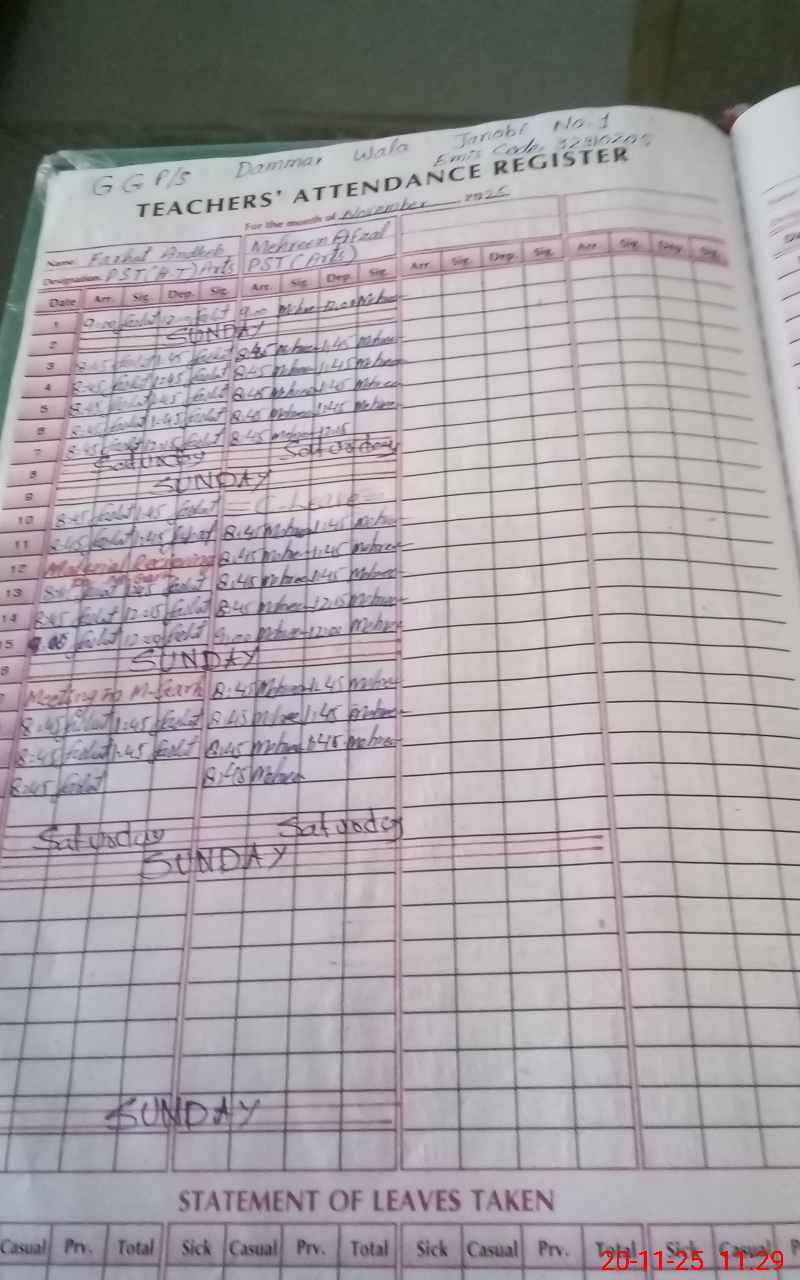 GGP/S Dammar Wala Janobi No.1
Emis Code.
TEACHERS' ATTENDANCE REGISTER
For the month of November 2025
Name: Farhat Andleeb Mehreen Afzal
Designation: PST (H.T) Arts PST (Arts)
Date Arr. Sig. Dep. Sig. Arr. Sig. Dep. Sig. Arr. Sig. Dep. Sig. Arr. Sig. Sig.
1 9:00 Farhat 12:00 Farhat 9:00 Mehree 12:00 Mehree
2 SUNDAY
3 8:45 Farhat 1:45 Farhat 8:45 Mehree 1:45 Mehree
4 8:45 Farhat 1:45 Farhat 8:45 Mehree 1:45 Mehree
5 8:45 Farhat 1:45 Farhat 8:45 Mehree 1:45 Mehree
6 8:45 Farhat 1:45 Farhat 8:45 Mehree 1:45 Mehree
7 8:45 Farhat 12:15 Farhat 8:45 Mehree 12:15
8 Saturday Saturday
9 SUNDAY
10 8:45 Farhat 1:45 Farhat = C-Leave =
11 8:45 Farhat 1:45 Farhat 8:45 Mehree 1:45 Mehree
12 Material Recieving 8:45 Mehree 1:45 Mehree
13 8:45 Farhat 1:45 Farhat 8:45 Mehree 1:45 Mehree
14 8:45 Farhat 12:15 Farhat 8:45 Mehree 12:15 Mehree
15 9:00 Farhat 12:00 Farhat 9:00 Mehree 12:00 Mehree
6 SUNDAY
Meeting 8:45 Mehree 1:45 Mehree
8:45 Farhat 1:45 Farhat 8:45 Mehree 1:45 Mehree
8:45 Farhat 1:45 Farhat 8:45 Mehree 1:45 Mehree
8:45 Farhat 8:45 Mehree
Saturday Saturday
SUNDAY
SUNDAY
STATEMENT OF LEAVES TAKEN
Casual Prv. Total Sick Casual Prv. Total Sick Casual Prv. Total Sick Casual P
20-11-25 11:29